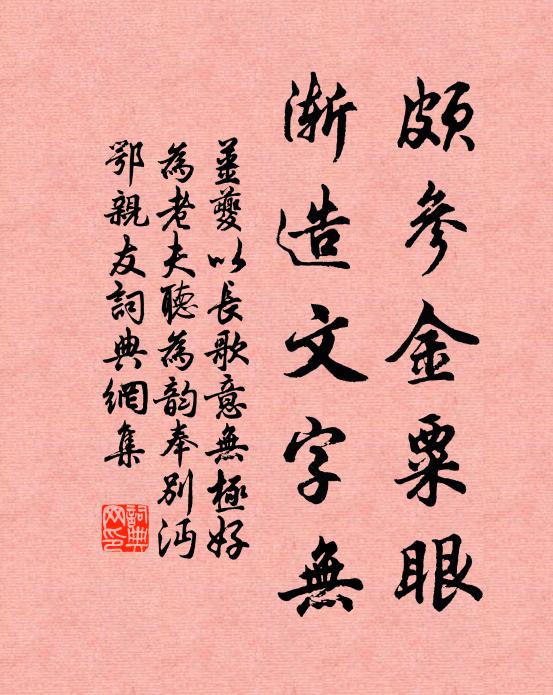 頗參金粟眼
漸造文字無
薑夔以長歌意無極好
為老夫聽為韵奉別沔
鄂親友詞典網集
詞典网印